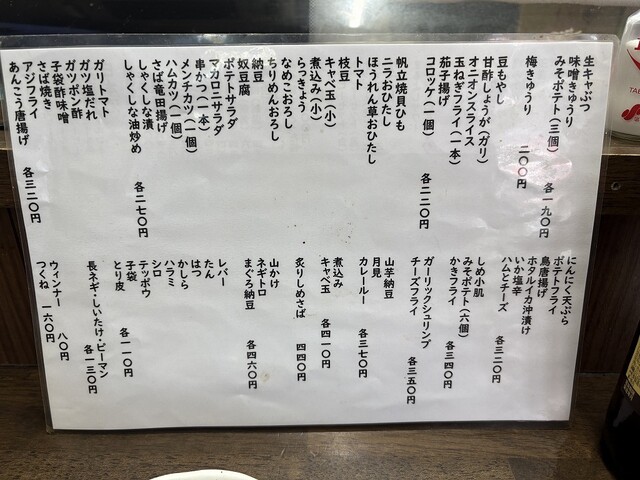 生キャベツ
味噌きゅうり
みそポテト(三個)
各一九〇円
梅きゅうり
二〇〇円
豆もやし
甘酢しょうが(ガリ)
オニオンスライス
玉ねぎフライ(一本)
茄子揚げ
コロッケ(一個)
各二二〇円
帆立焼貝ひも
ニラおひたし
ほうれん草おひたし
トマト
枝豆
キャベ玉(小)
煮込み(小)
らっきょう
なめこおろし
ちりめんおろし
納豆
奴豆腐
ポテトサラダ
マカロニサラダ
串かつ(一本)
メンチカツ(一個)
ハムカツ(一個)
さば竜田揚げ
しゃくしな漬
しゃくしな油炒め
各二七〇円
ガリトマト
ガツ塩だれ
ガツポン酢
子袋酢味噌
さば焼き
アジフライ
あんこう唐揚げ
各三二〇円
にんにく天ぷら
ポテトフライ
鳥唐揚げ
ホタルイカ沖漬け
いか塩辛
ハムとチーズ
各三二〇円
しめ小肌
みそポテト(六個)
かきフライ
各三四〇円
ガーリックシュリンプ
チーズフライ
各三五〇円
山芋納豆
月見
カレールー
各三七〇円
煮込み
キャベ玉
各四一〇円
炙りしめさば
四四〇円
山かけ
ネギトロ
まぐろ納豆
各四六〇円
レバー
たん
はつ
かしら
ハラミ
シロ
テッポウ
子袋
とり皮
各一一〇円
長ネギ・しいたけ・ピーマン
各一三〇円
ウィンナー 八〇円
つくね 一六〇円